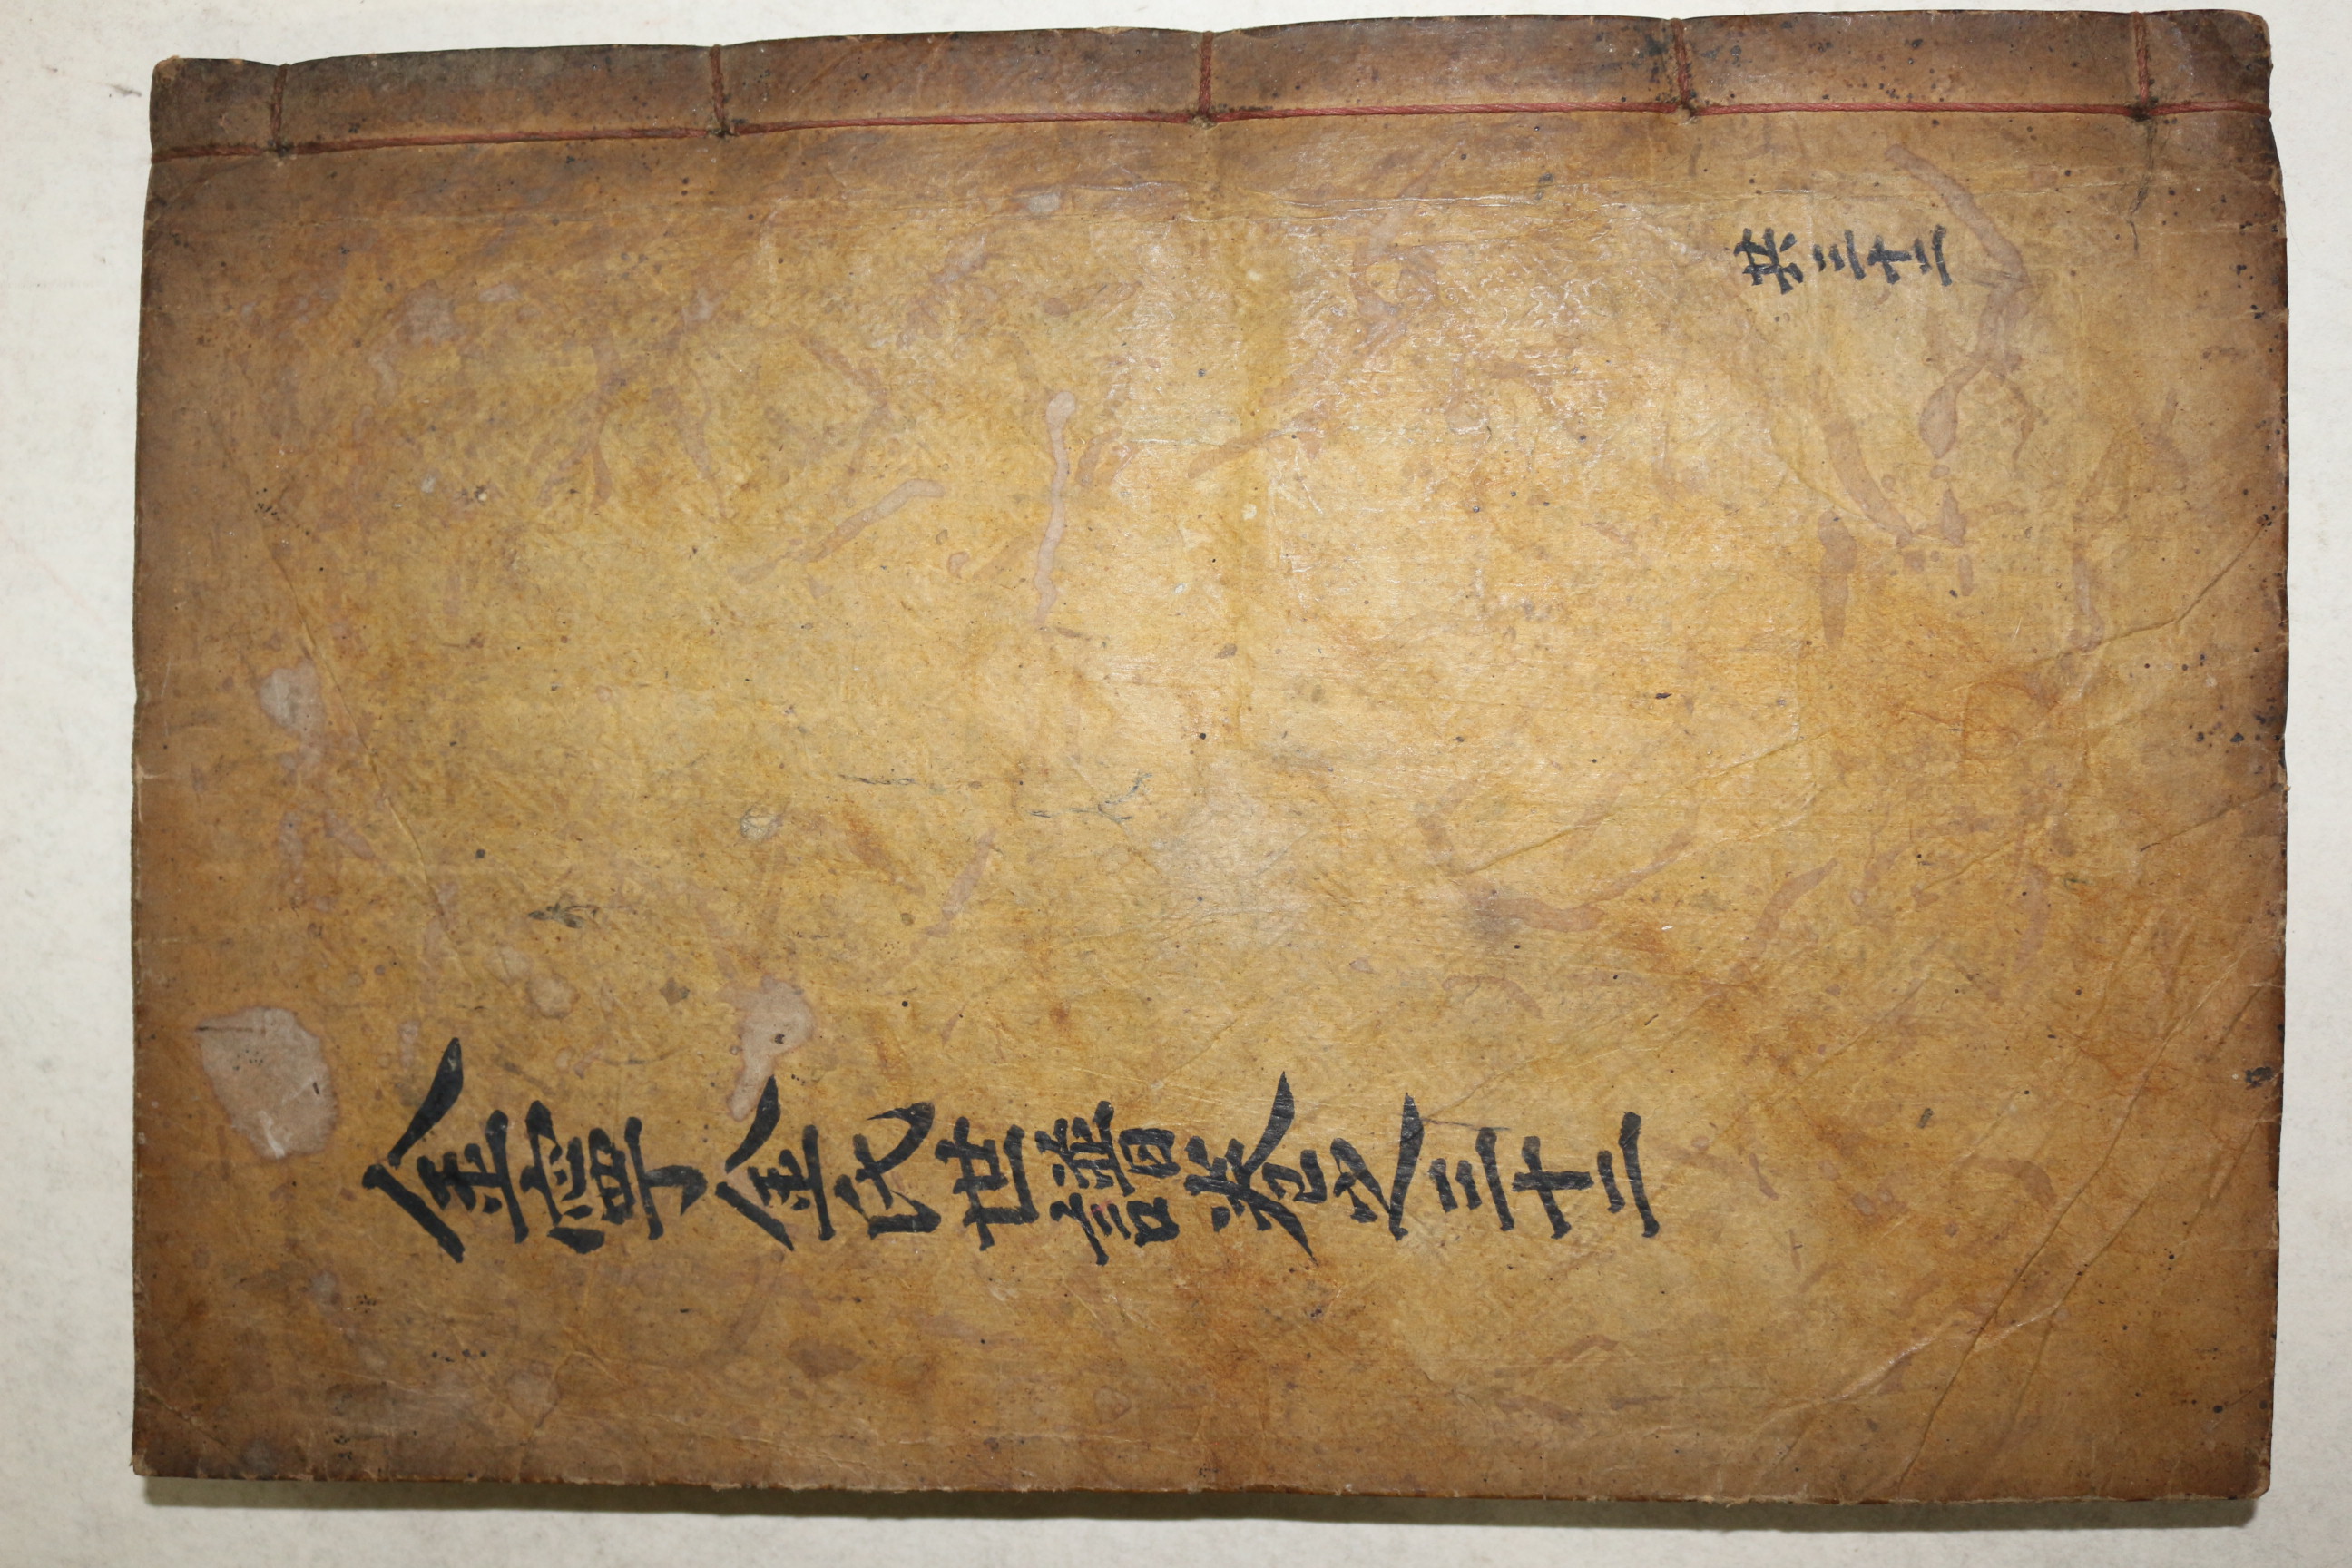 金寧金氏世譜卷之三十二
共三十二